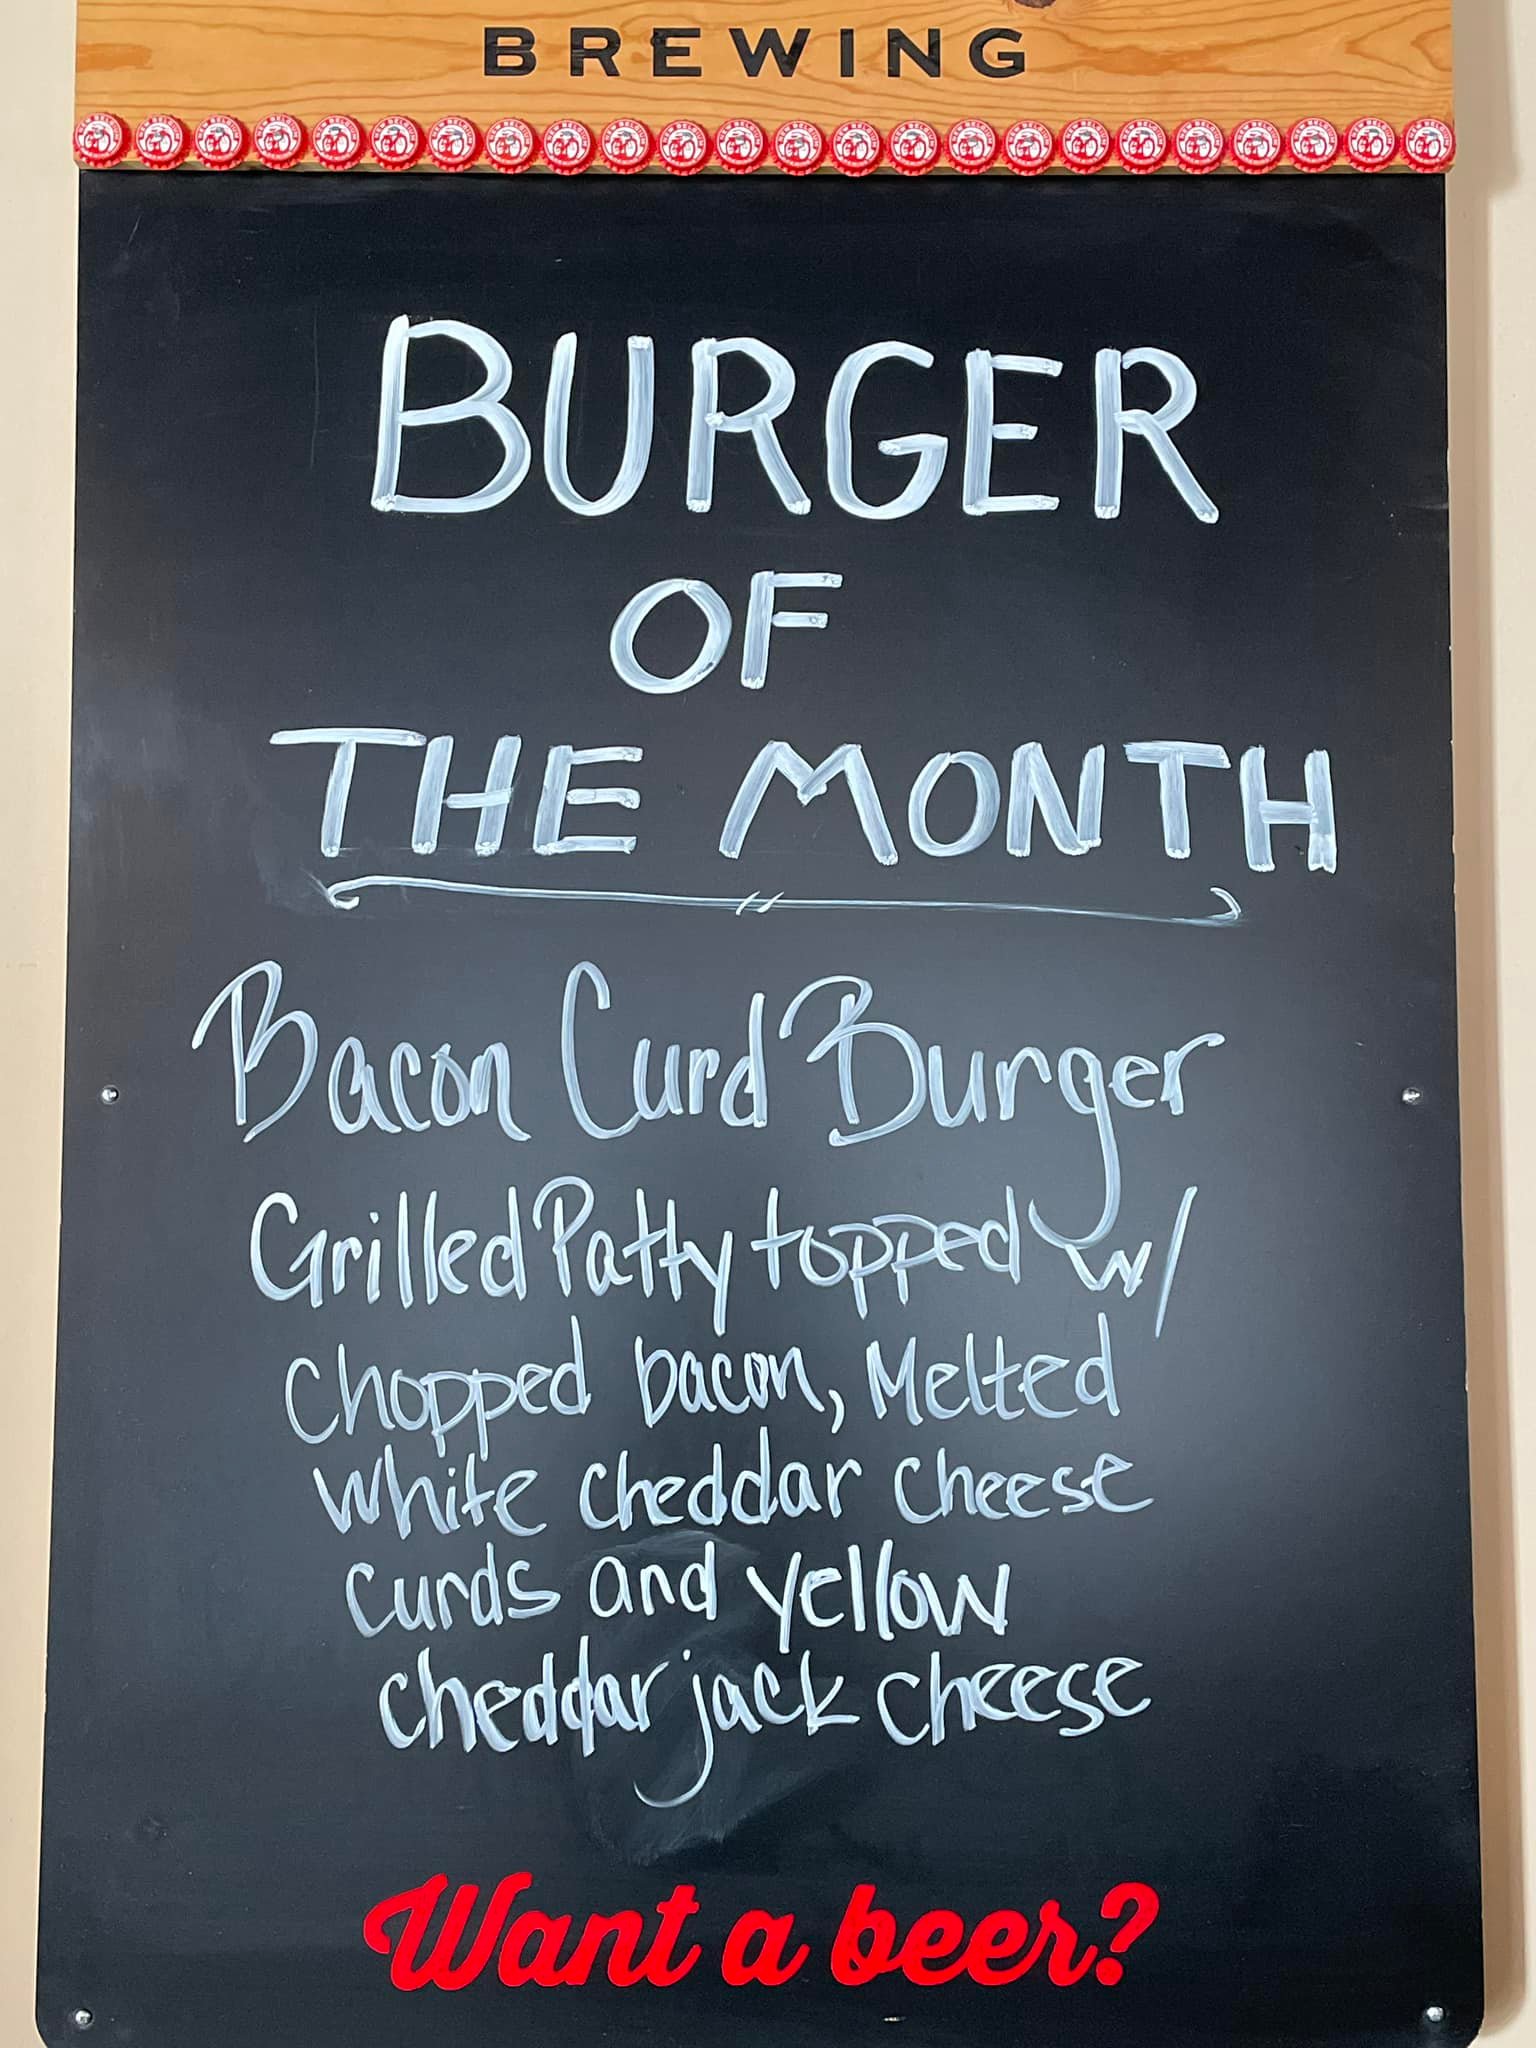 BREWING
BURGER
OF
THE MONTH
Bacon Curd Burger
Grilled Patty topped w/
Chopped bacon, Melted
White cheddar cheese
curds and yellow
cheddar jack cheese
Want a beer?